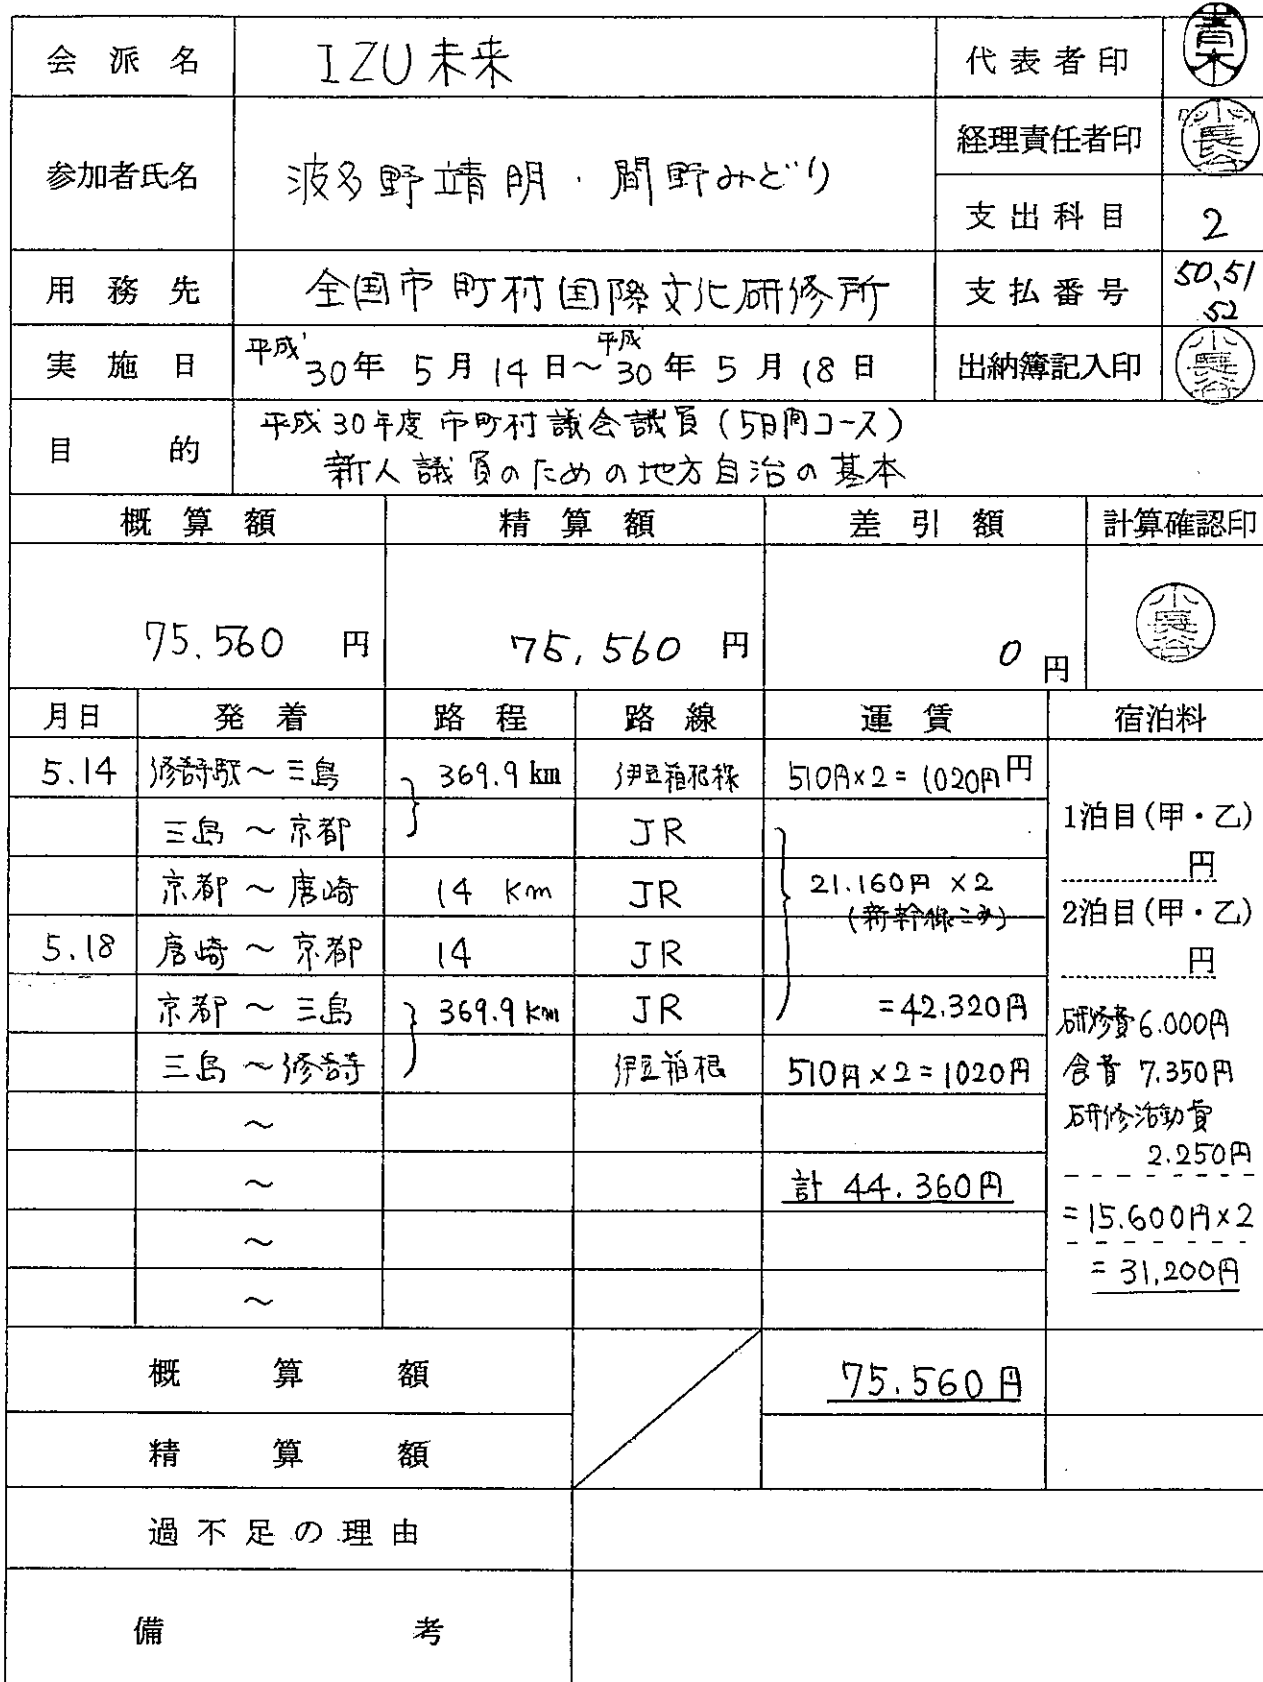 会派名 IZU未来 代表者印 青木
参加者氏名 波多野靖明・間野みどり 経理責任者印 小長谷
支出科目 2
用務先 全国市町村国際文化研修所 支払番号 50,51
52
実施日 平成30年 5月14日～平成30年 5月18日 出納簿記入印 小長谷
目的 平成30年度市町村議会議員(5日間コース)
新人議員のための地方自治の基本
概算額 精算額 差引額 計算確認印
75.560 円 75,560 円 0 円 小長谷
月日 発着 路程 路線 運賃 宿泊料
5.14 修善寺駅～三島 369.9 km 伊豆箱根線 510円×2=1020円 円
三島～京都 JR 1泊目(甲・乙)
円
京都～唐崎 14 Km JR 21.160円×2
(新幹線こみ) 2泊目(甲・乙)
5.18 唐崎～京都 14 JR 円
京都～三島 369.9 Km JR =42.320円 研修費6.000円
三島～修善寺 伊豆箱根 510円×2=1020円 食費 7.350円
～ 研修活動費
2.250円
～ 計 44.360円
=15.600円×2
～
=31,200円
～
概算額 75.560円
精算額
過不足の理由
備考